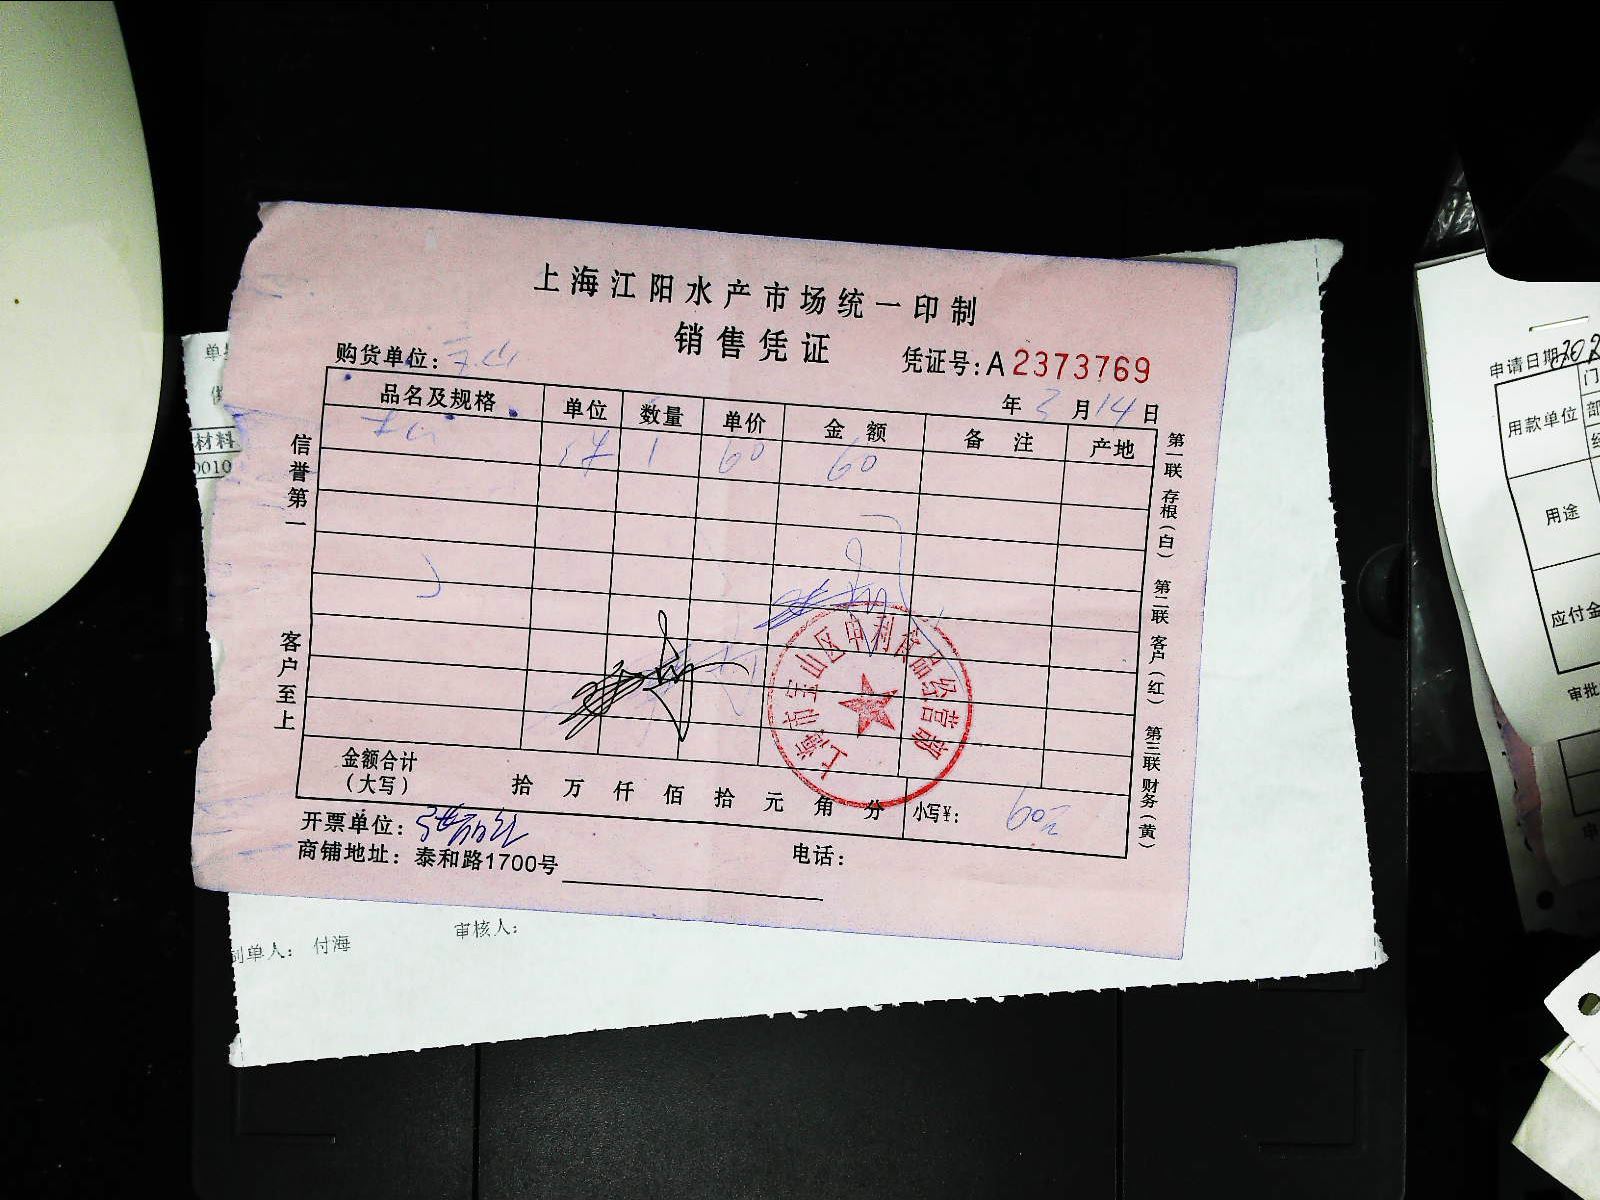 上海江阳水产市场统一印制
销售凭证
购货单位:
凭证号:A 2373769
年 3 月 14 日
品名及规格 单位 数量 单价 金额 备注 产地
1 60 60
信誉第一
客户至上
第一联 存根(白) 第二联 客户(红) 第三联 财务(黄)
上海市宝山区申利食品经营部
金额合计
(大写)
拾 万 仟 佰 拾 元 角 分 小写¥: 60元
开票单位:
商铺地址: 泰和路1700号
电话:
材料
0010
制单人: 付海
审核人:
申请日期 202
用款单位
用途
应付金
审批